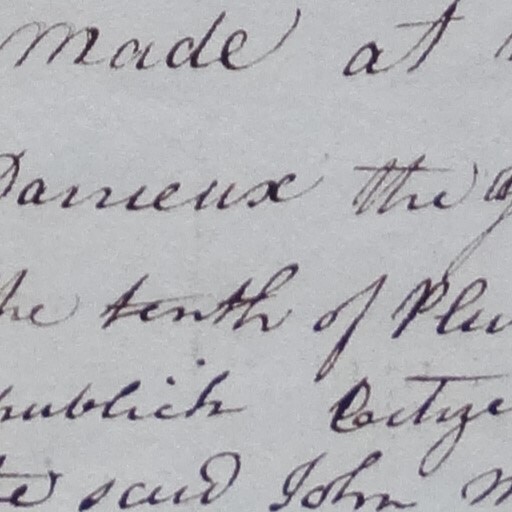 made at
Darrieux the
he tenth of Plu
publick
te said John